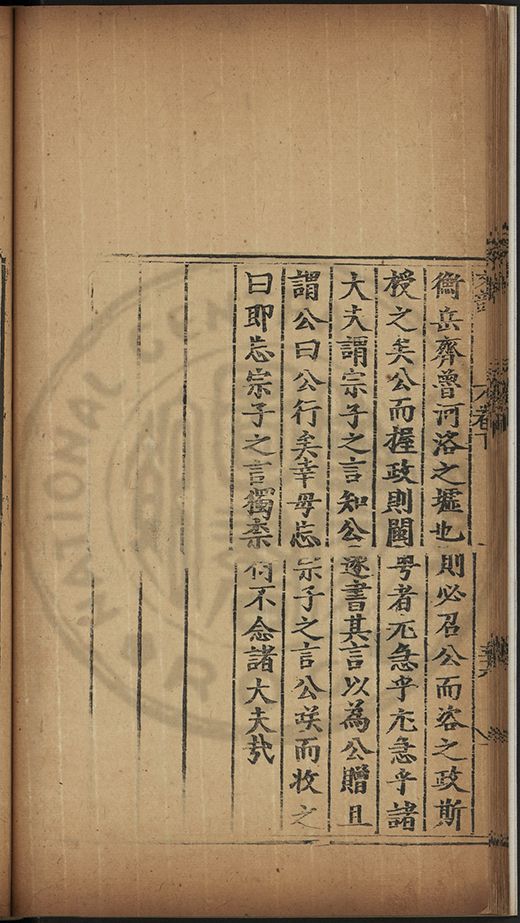 衡岳齊魯河洛之墟也則必召公而咨之政斯
授之矣公而握政則閩粤者不急乎不急乎諸
大夫謂宗子之言知公遂書其言以為公贈且
謂公曰公行矣幸毋忘宗子之言公咲而收之
曰即忘宗子之言獨柰何不念諸大夫哉
NATIONAL